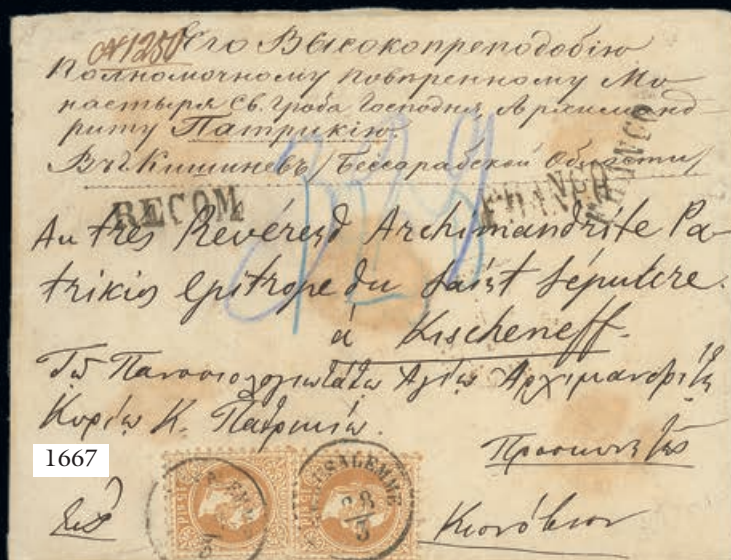 №1250 Его Высокопреподобію
Полномочному повѣренному Мо
настыря Св. Гроба Господня, Архиманд
риту Патрикію.
Въ Кишиневъ /Бессарабской Области/
RECOM
FRANCO
FRANCO
FRANCO
Au très Revérend Archimandrite Pa-
trikios épitrope du Saint Sépulcre.
à Kischeneff.
Τῷ Πανοσιολογιωτάτῳ Ἁγίῳ Ἀρχιμανδρίτῃ
Κυρίῳ Κ. Πατρικίῳ.
1667
JERUSALEMME
28
5
Εἰς